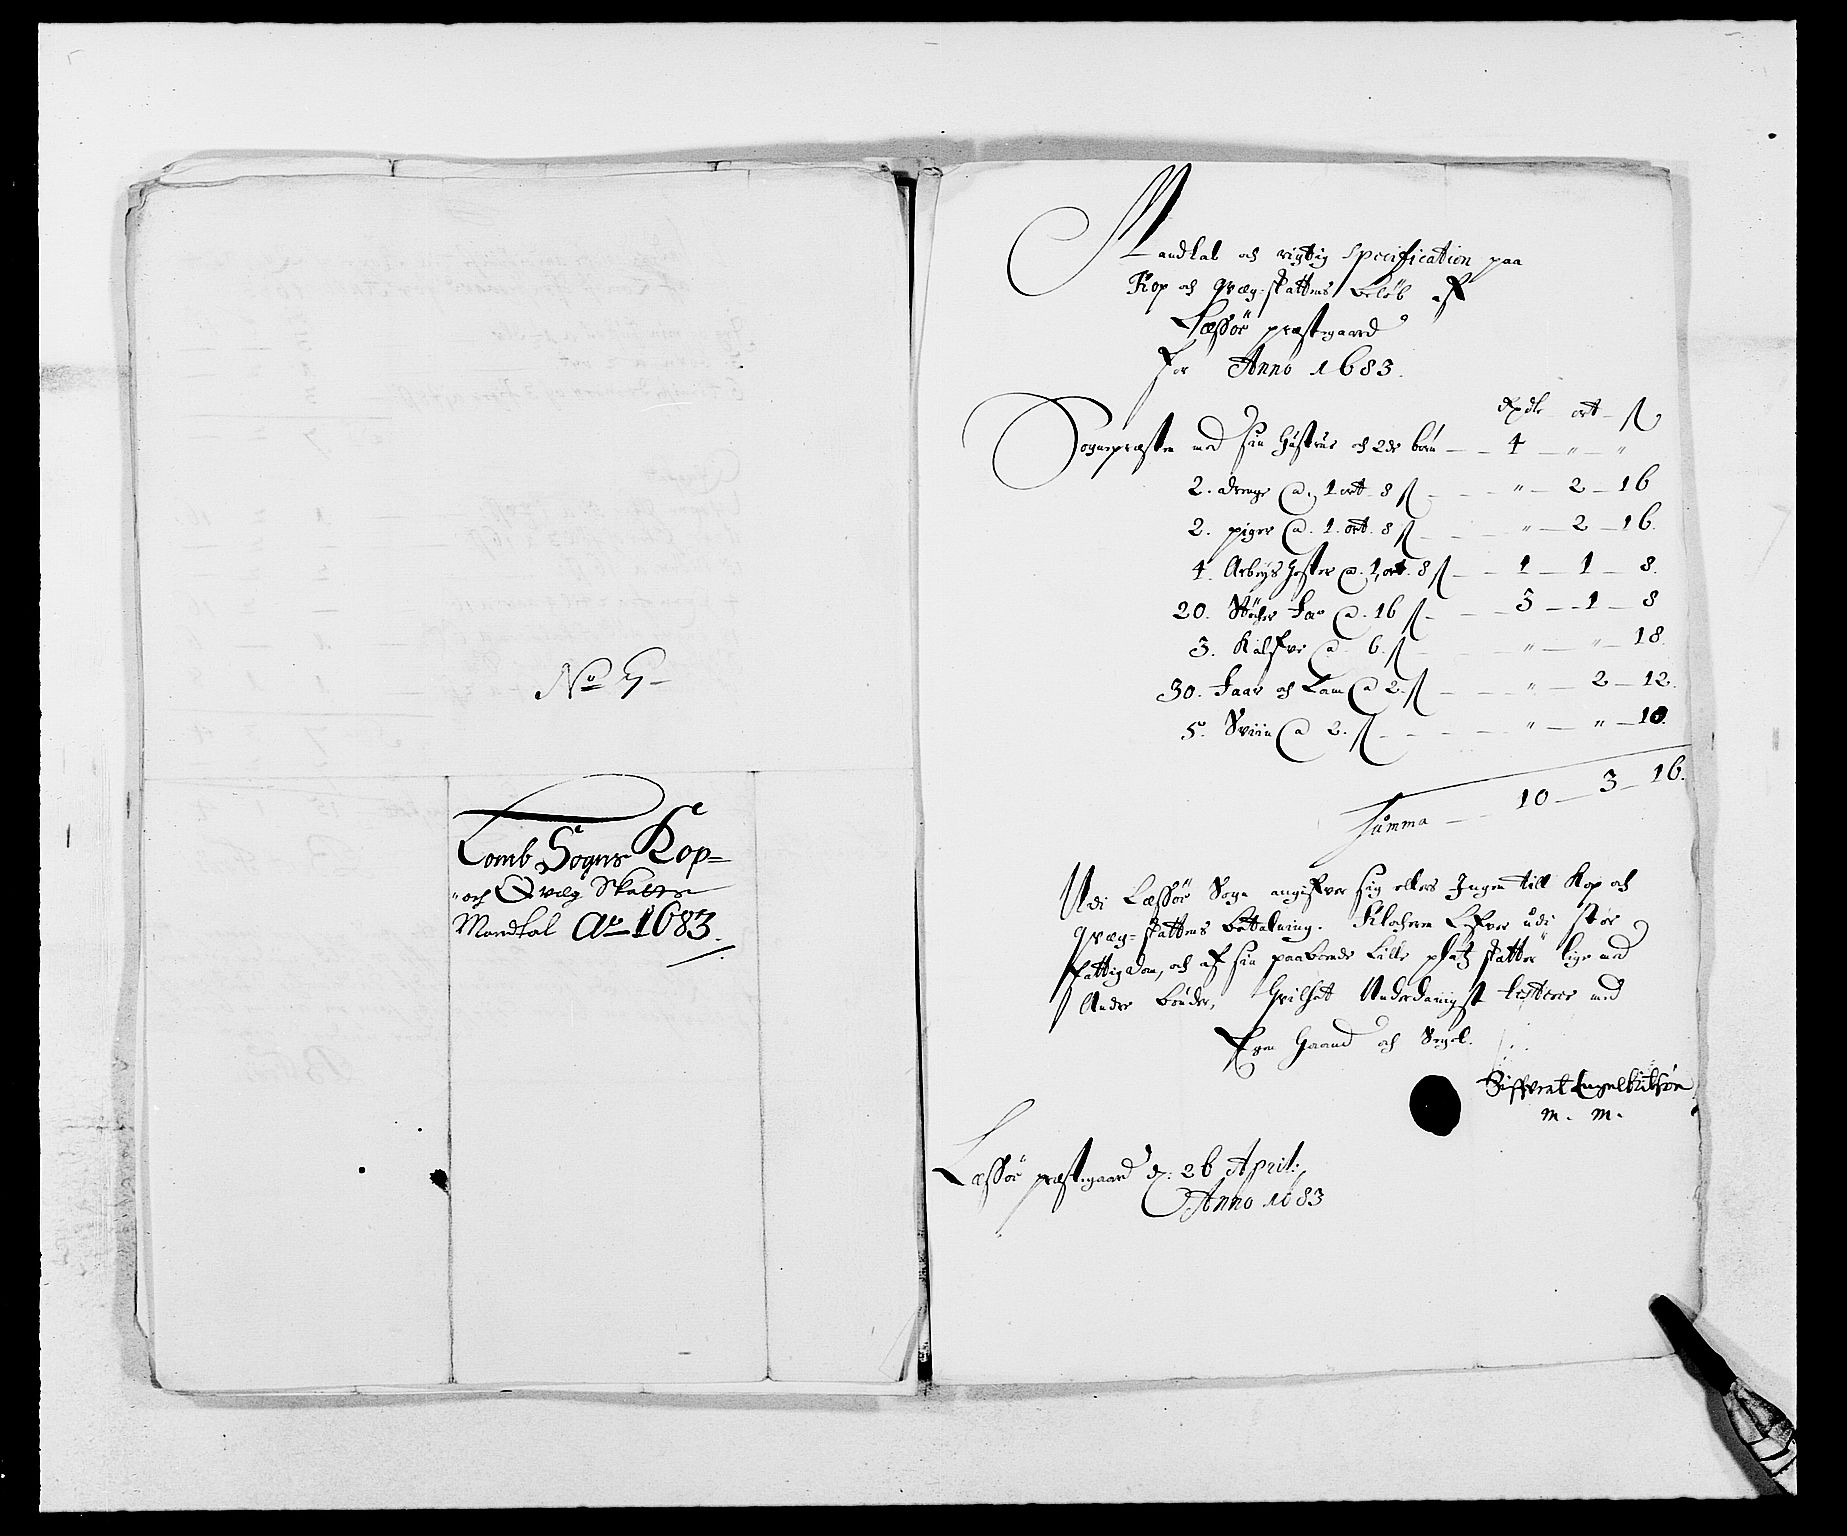 No 9
Lomb Sogns Kop=
och Qvæg Skatts
Mandtal Ao 1683.
Mandtal och rigtig Specification paa
Kop och qvæg-skattens beløb af
Læssøe præstegaard
for Anno 1683.
Rxdlr ort ß
Sognepræsten med sin Hustrue och 2de børn — 4 — " — "
2. drenge @ 1 ort 8 ß — " — 2 — 16
2. piger @. 1. ort. 8 ß — " — 2 — 16.
4. Arbeyds hester @. 1 ort. 8 ß — 1 — 1 — 8.
20. Støcher Fæ @. 16 ß — 3 — 1 — 8
3. Kalfve @ 6. ß — " — " — 18.
30. Faar och Lam @ 2. ß — " — 2 — 12.
5. Sviin @ 2. ß — " — " — 10.
Summa — 10 — 3 — 16.
Udi Læssøe Sogn angifver sig ellers Ingen till Kop och
qvæg-skattens betalning. Klocheren lefver udi stor
fattigdom, och af sin paaboende lille platz skatter lige med
Andre bønder, hvilchet Underdanigst testerer med
Egen Haand och Segel.
Siffvert Engelbritsøn
m. m.
Læssøe præstegaard d. 26 April:
Anno 1683